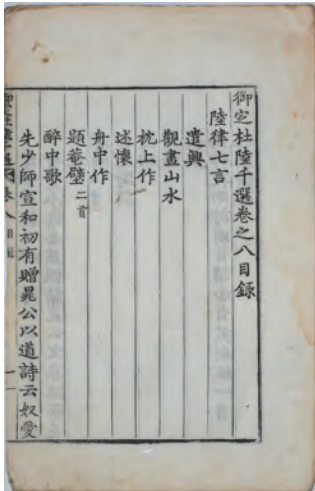 御定杜陸千選卷之八目錄
陸律七言
遣興
觀畫山水
枕上作
述懷
舟中作
題菴壁二首
醉中歌
先少師宣和初有贈晁公以道詩云奴愛